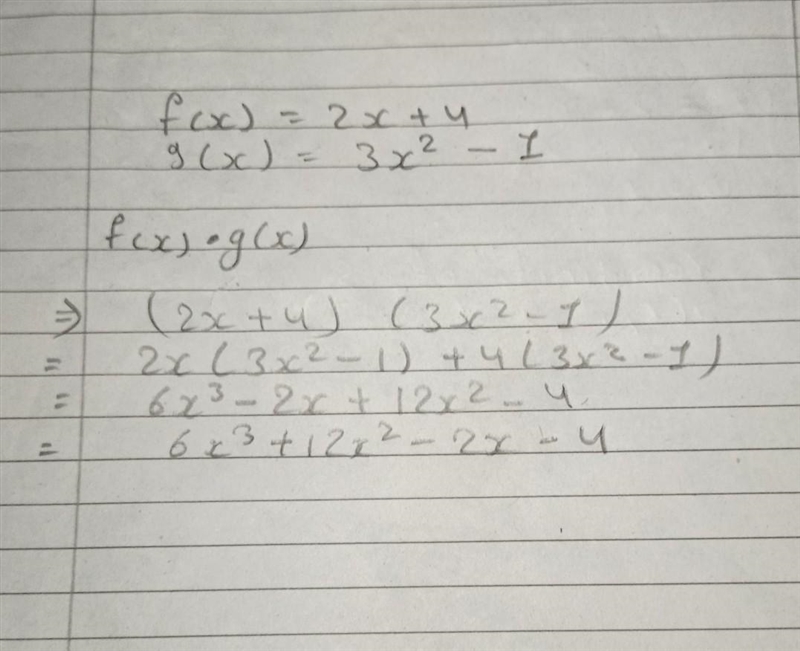 f(x) = 2x + 4
g(x) = 3x² - 1
f(x) • g(x)
⇒ (2x + 4) (3x² - 1)
= 2x (3x² - 1) + 4 (3x² - 1)
= 6x³ - 2x + 12x² - 4
= 6x³ + 12x² - 2x - 4